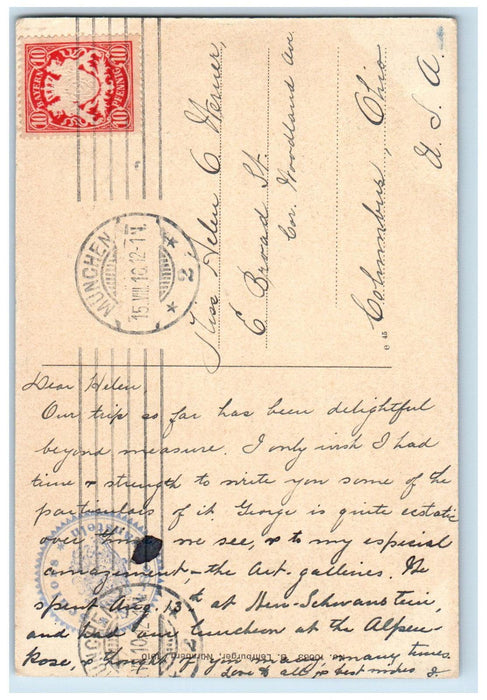 BAYERN
10 10
PFENNIG
10 10
MÜNCHEN
15.VIII.10.12-1N.
2
Miss Helen C Werner,
E Broad St.
Cor. Woodland Ave
Columbus, Ohio
U. S. A.
e 45
Dear Helen,
Our trip so far has been delightful
beyond measure. I only wish I had
time & strength to write you some of the
particulars of it. George is quite ecstatic
over we see, & to my especial
amazement, - the Art-galleries. We
spent Aug. 13th at Neu-Schwanstein,
and had our luncheon at the Alpen-
Rose, & thought of you many, many times.
Love to all & best wishes
Lehrburger, Nürnberg 1910